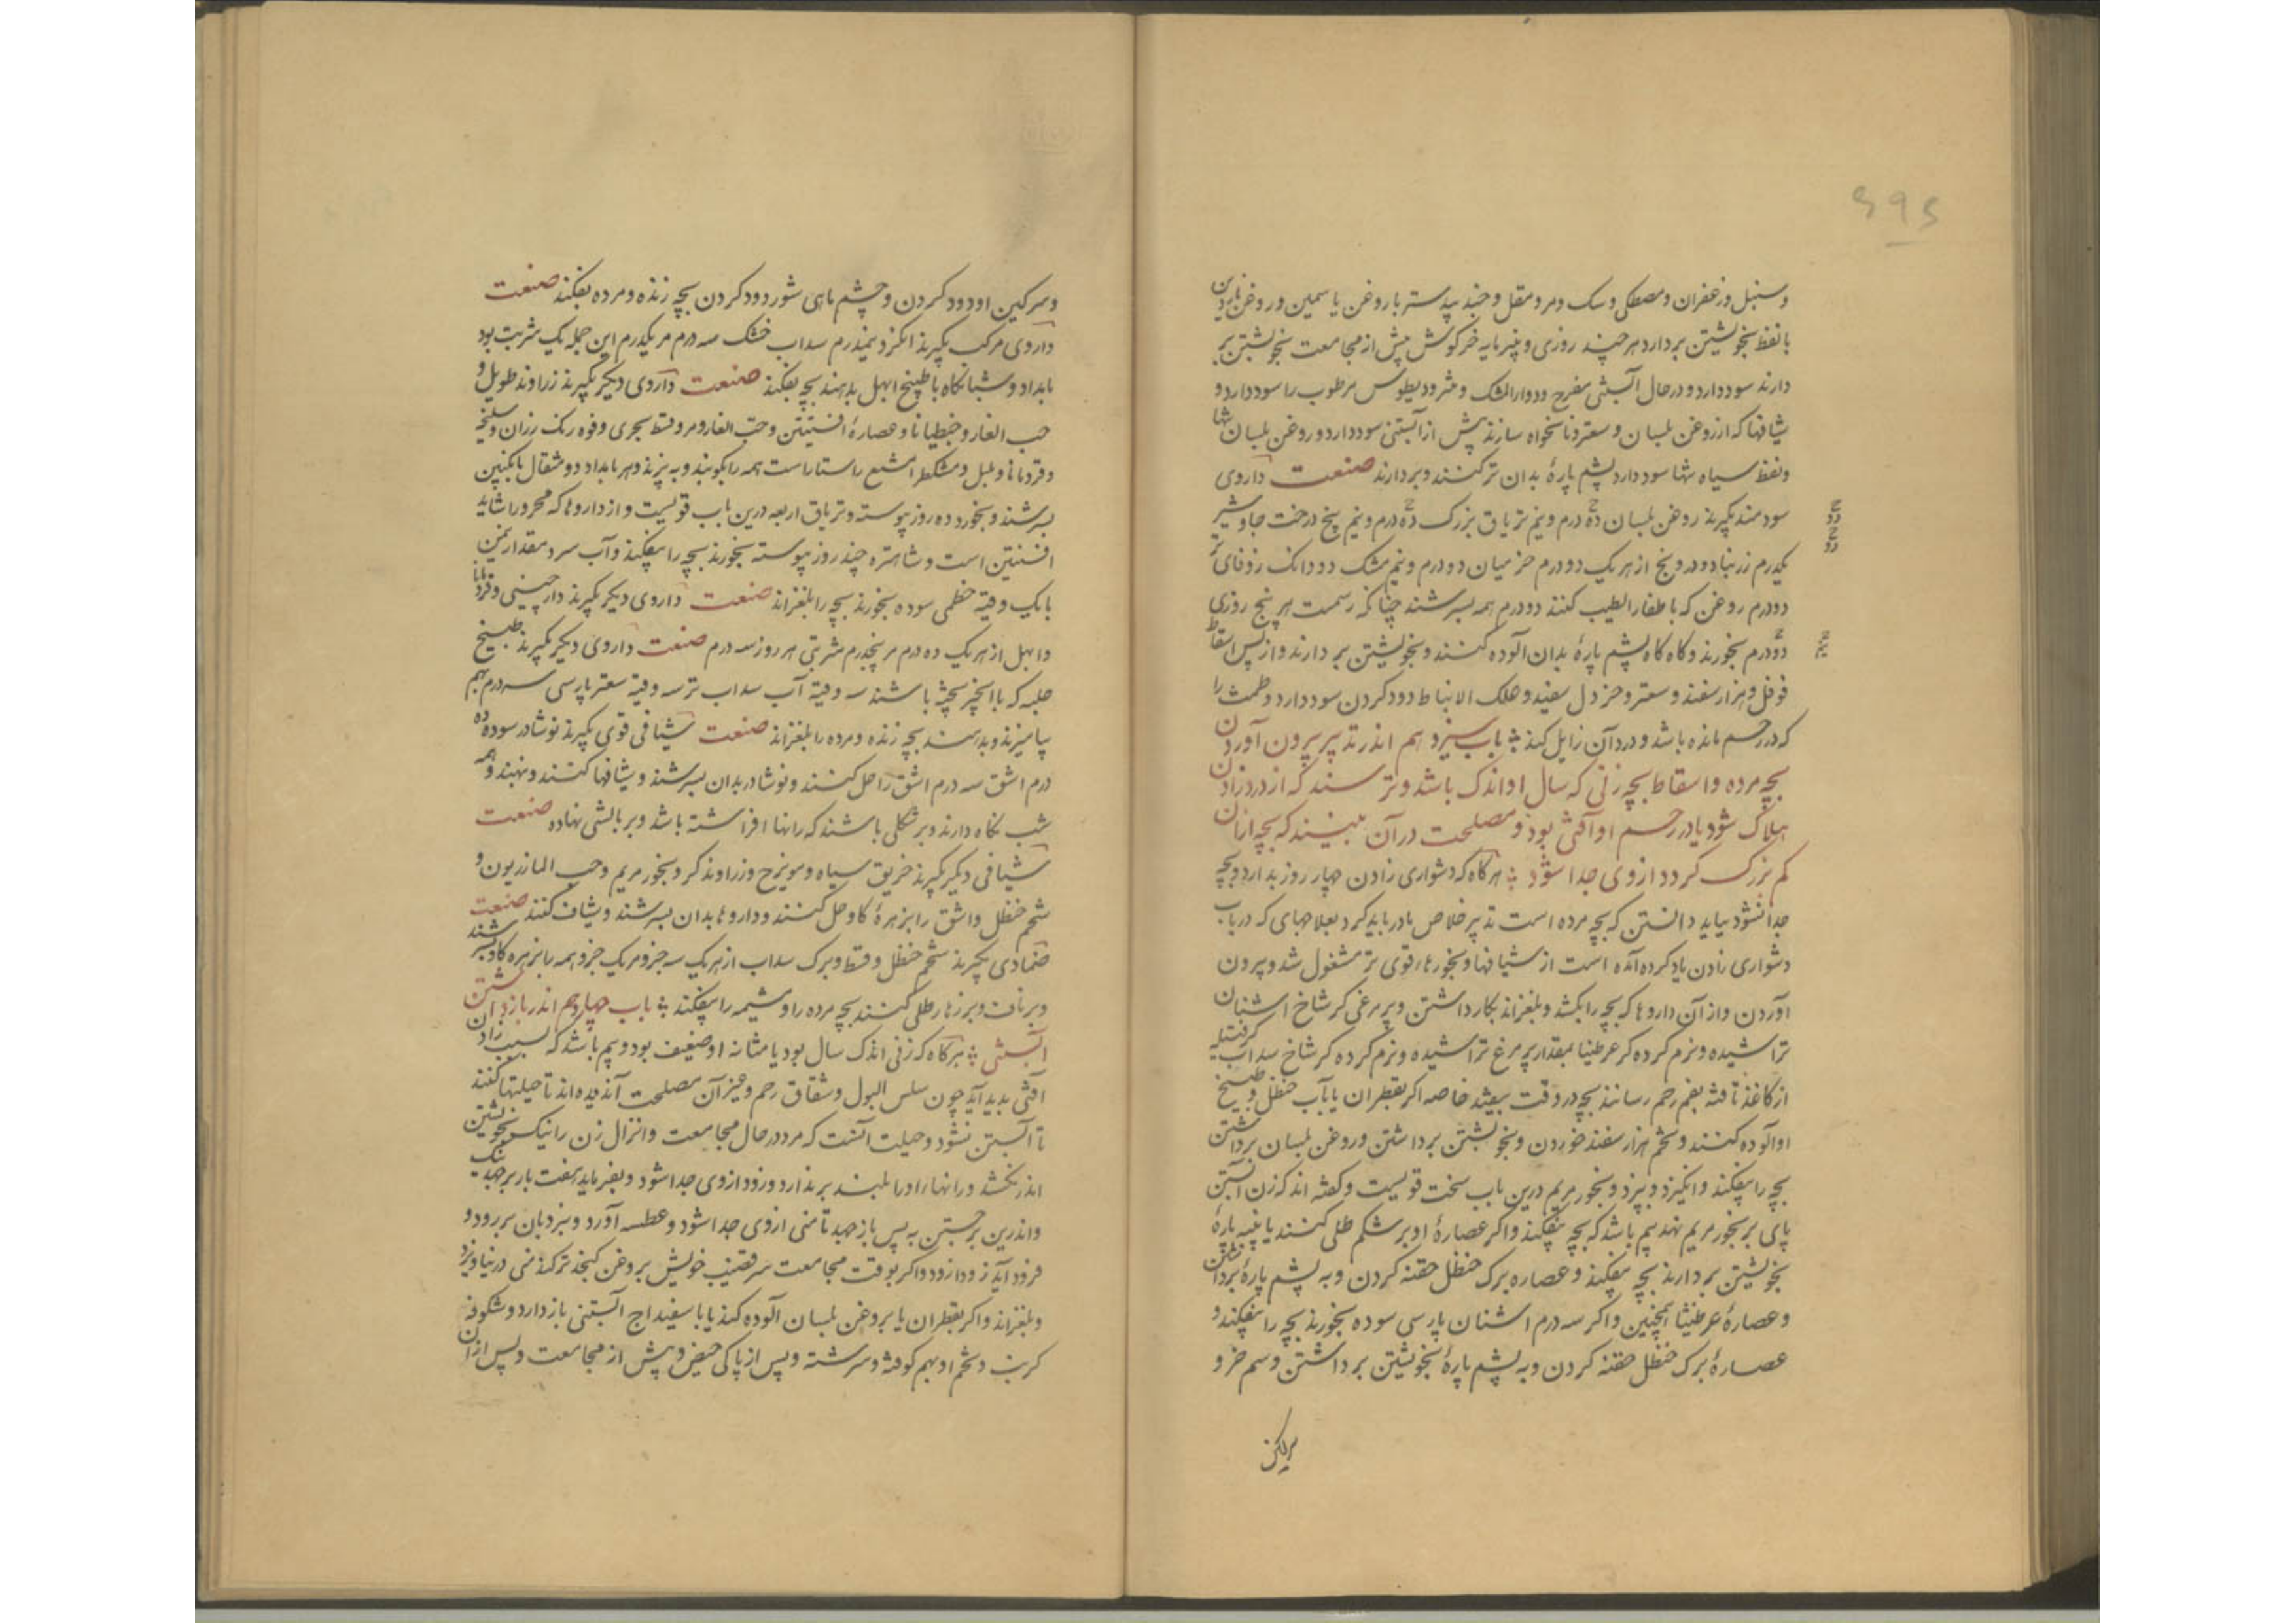 ۶۹۶
وسنبل وزعفران ومصطکی وسک ومر ومقل وجند بیدستر با روغن یاسمین وروغن ناردین
با نفط بخویشتن بردارد هر چند روزی وپنیر مایه خرکوش پیش از مجامعت بخویشتن بر
دارند سود دارد ودر حال آبستنی مفرح ودواء المشک ومثرودیطوس مرطوب را سود دارد و
شیافها که از روغن بلسان وسعتر ونانخواه سازند پیش از آبستنی سود دارد وروغن بلسان تنها
ونفط سیاه تنها سود دارد پشم پارۀ بدان تر کنند وبردارند صنعت داروی
سودمند بکیرند روغن بلسان ده درم ونیم تریاق بزرک ده درم ونیم بیخ درخت جاوشیر
یکدرم زرنباد ودرونج از هریک دو درم خز میان دو درم ونیم مشک دو دانک زوفای تر
دو درم روغن که با اظفار الطیب کنند دو درم همه بسرشند چنانکه رسمست هر پنج روزی
دو درم بخورند وکاه کاه پشم پارۀ بدان آلوده کنند وبخویشتن بردارند واز پس اسقاط
فوفل وهزار سفند وسعتر وخردل سفید وعلک الانباط دود کردن سود دارد وطمث را
که در رحم مانده باشد ودرد آن زایل کند باب سیزدهم اندر تدبیر بیرون آوردن
بچه مرده واسقاط بچه زنی که سال او اندک باشد وترسند که از درد زادن
هلاک شود یا در رحم او آفتی بود ومصلحت در آن بینند که بچه از ان
کم بزرک کردد از وی جدا شود هرکاه که دشواری زادن چهار روز بدارد وبچه
جدا نشود بباید دانستن که بچه مرده است تدبیر خلاص مادر باید کرد بعلاجهای که در باب
دشواری زادن یاد کرده آمده است از شیافها وبخورهاء قوی تر مشغول شد وبیرون
آوردن واز آن داروها که بچه را بکشد وبلغزاند بکار داشتن وپر مرغی کر شاخ اشنان
تراشیده ونرم کرده کر عرطنیثا بمقدار پر مرغ تراشیده ونرم کرده کر شاخ سداب کر فتیله
از کاغذ تافته بفم رحم رسانند بچه در وقت بیفتد خاصه اکر بقطران یا بآب حنظل وطبیخ
او آلوده کنند وتخم هزار سفند خوردن وبخویشتن برداشتن وروغن بلسان برداشتن
بچه را بیفکند وانکیزد وببرد وبخور مریم درین باب سخت قویست وکفته اند که زن آبستن
پای بر بخور مریم نهد بیم باشد که بچه بیفکند واکر عصارۀ او بر شکم طلی کنند یا پنبه پارۀ
بخویشتن بردارند بچه بیفکند وعصاره برک حنظل حقنه کردن وبه پشم پارۀ برداشتن
وعصارۀ عرطنیثا همچنین واکر سه درم اشنان پارسی سوده بخورند بچه را بیفکند و
عصارۀ برک حنظل حقنه کردن وبه پشم پارۀ بخویشتن برداشتن وسم خر و
سرکین
وسرکین او دود کردن وچشم ماهی شور دود کردن بچه زنده ومرده بفکند صنعت
داروی مرکب بکیرند انکزد نیمدرم سداب خشک سه درم مر یکدرم این جمله یک شربت بود
بامداد وشبانکاه با طبیخ ابهل بدهند بچه بفکند صنعت داروی دیکر بکیرند زراوند طویل و
حب الغار وجنطیانا وعصارۀ افسنتین وحب الغار ومر وقسط بحری وفوه رنک رزان وسلیخه
وقردمانا وفلفل ومشکطرامشیع راستاراست همه را بکوبند وبه بیزند وهر بامداد دو مثقال بانکبین
بسرشند وبخورد ده روز پیوسته وتریاق اربعه درین باب قویست واز داروها که محرور را شاید
افسنتین است وشاهتره چند روز پیوسته بخورند بچه را بیفکند وآب سرد مقدار یکمن
با یک وقیه خطمی سوده بخورند بچه را بلغزاند صنعت داروی دیکر بکیرند دارچینی وقردمانا
وابهل از هریک ده درم مر پنجدرم شربتی هر روز سه درم صنعت داروی دیکر بکیرند طبیخ
حلبه که با انجیر پخته باشند سه وقیه آب سداب تر سه وقیه سعتر پارسی سه درم بهم
بیامیزند وبدهند بچه زنده ومرده را بلغزاند صنعت شیافی قوی بکیرند نوشادر سوده ده
درم اشق سه درم اشق را حل کنند ونوشادر بدان بسرشند وشیافها کنند وبنهند وهمه
شب نکاه دارند وبر شکلی باشند که رانها افراشته باشد وبر بالشی نهاده صنعت
شیافی دیکر بکیرند خربق سیاه ومویزج وزراوند کرد وبخور مریم وحب المازریون و
شحم حنظل واشق را بزهرۀ کاو حل کنند وداروها بدان بسرشند وشیاف کنند صنعت
ضمادی بکیرند شحم حنظل وقسط وبرک سداب از هریک سه جزو مر یک جزو همه را بزهره کاو بسرشند
وبر ناف وبر زهار طلی کنند بچه مرده را ومشیمه را بیفکند باب چهاردهم اندر باز داشتن
آبستنی هرکاه که زنی اندک سال بود یا مثانه او ضعیف بود وبیم باشد که بسبب زادن
آفتی بدید آید چون سلس البول وشقاق رحم وغیر آن مصلحت آن دیده اند تا حیلتها کنند
تا آبستن نشود وحیلت آنست که مرد در حال مجامعت وانزال زن را نیک بخویشتن
اندر نکشد ورانها را او را بلند برندارد وزود از وی جدا شود وبفرماید هفت بار برجهد نیک
واندرین برجستن به پس باز جهد تا منی از وی جدا شود وعطسه آورد وبنردبان بر رود و
فرود آید زود از زود واکر بوقت مجامعت سر قضیب خویش بروغن کنجد تر کند منی در نیاویزد
وبلغزاند واکر بقطران یا بروغن بلسان آلوده کند یا با سفیداج آبستنی باز دارد وشکوفه
کرنب وتخم او بهم کوفته وسرشته وپس از پاکی حیض وپیش از مجامعت وپس از ان